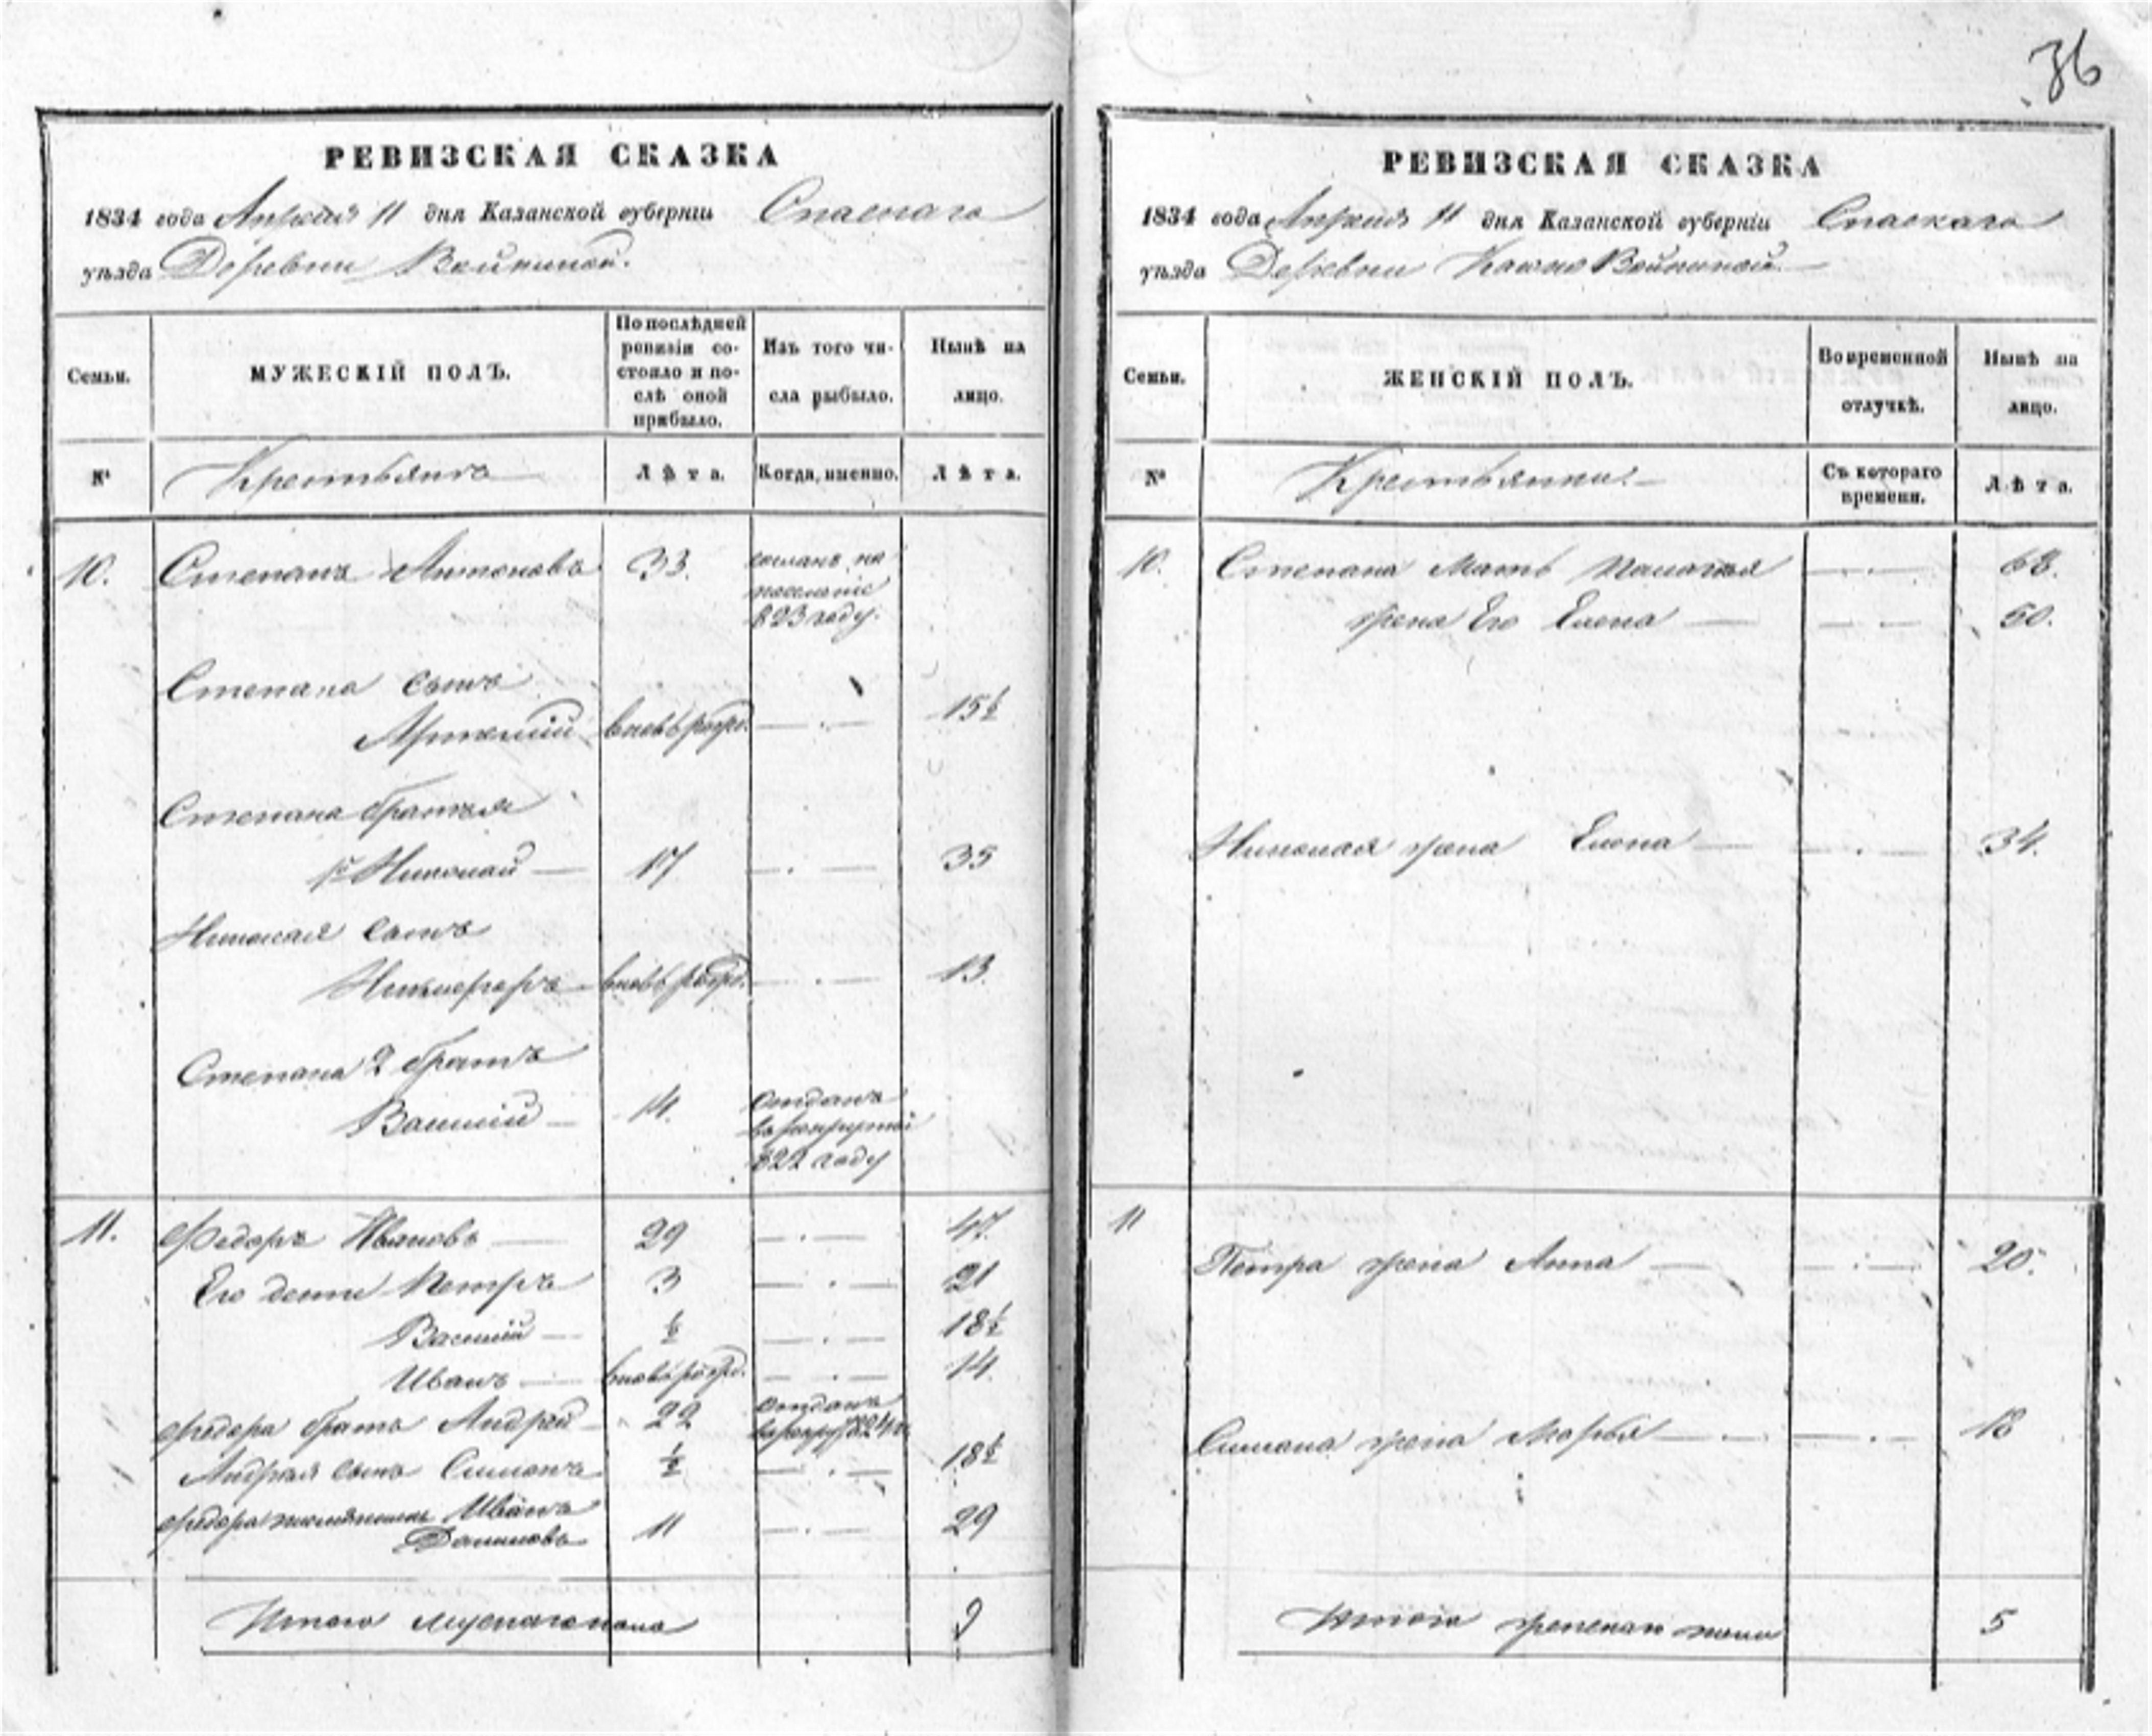 36
РЕВИЗСКАЯ СКАЗКА
1834 года Апреля 11 дня Казанской губерніи Спаскаго
уѣзда Деревни Войкиной.
Семьи.
МУЖЕСКІЙ ПОЛЪ.
По послѣдней ревизіи состояло и послѣ оной прибыло.
Изъ того числа выбыло.
Нынѣ на лицо.
№
Крестьянъ
Лѣта.
Когда, именно.
Лѣта.
10. Степанъ Антоновъ 33. сосланъ на
поселеніе
823 году.
Степана сынъ
Артемій вновь рожд. 15½
Степана братья
1й Николай 17 35
Николая сынъ
Никифоръ вновь рожд. 13.
Степана 2 братъ
Василій 14. отданъ
въ рекруты
822 году
11. Федоръ Ивановъ 29 47.
Его дети Петръ 3 21
Василій ½ 18½
Иванъ вновь рожд. 14.
Федора братъ Андрей 22 отданъ
824
Андрея сынъ Симонъ ½ 18½
Федора племянникъ Иванъ
Даниловъ 11 29
Итого мужескаго пола 9
РЕВИЗСКАЯ СКАЗКА
1834 года Апреля 11 дня Казанской губерніи Спаскаго
уѣзда Деревни Войкиной.
Семьи.
ЖЕНСКІЙ ПОЛЪ.
Во временной отлучкѣ.
Нынѣ на лицо.
№
Крестьянки.
Съ котораго времени.
Лѣта.
10. Степана мать Палагея 68.
жена Его Елена 50.
Николая жена Елена 34.
11
Петра жена Анна 20.
Симона жена Марья 18
Итого женскаго пола 5